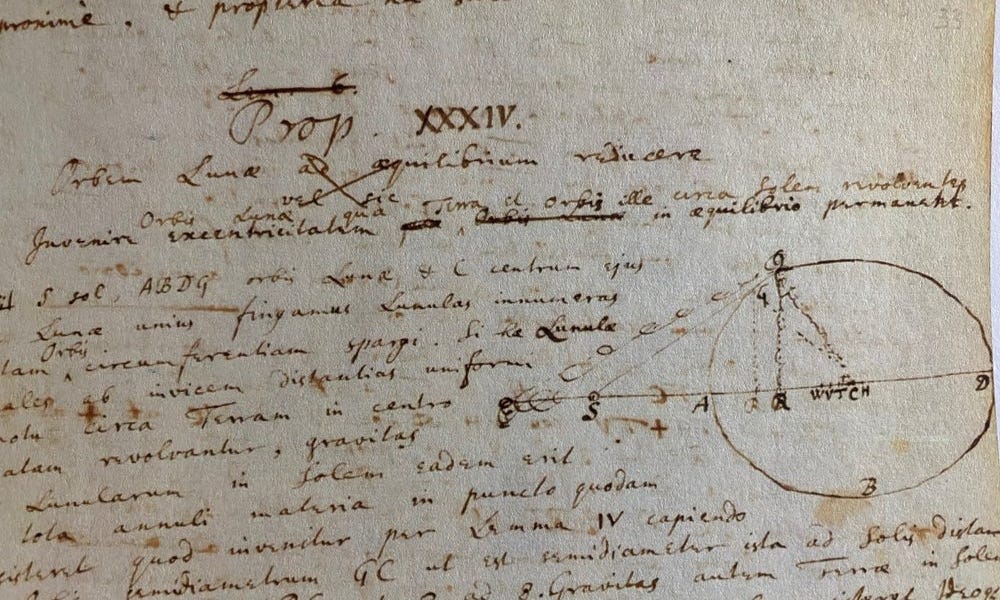 proximè. & propterea
33
Prop. XXXIV.
Orbem Lunæ ad æquilibrium reducere
vel sic
Invenire excentricitatem Orbis Lunæ quâ Terra et Orbis ille circa Solem revolventes in æquilibrio permaneant.
S sol, ABDG orbis Lunæ, & C centrum ejus
Lunæ unius fingamus Lunulas innumeras
tam Orbis circumferentiam spargi. Si hæ Lunulæ
ales ab invicem distantias uniformi
motu circa Terram in centro
atam revolvantur, gravitas
Lunularum in Solem eadem erit
tota annuli materia in puncto quodam
sisteret quod invenitur per Lemma IV capiendo
semidiametrum GC ut est semidiameter ista ad Solis distan
Gravitas autem Terræ in Solem
G
S
A
R
WVTCH
D
B